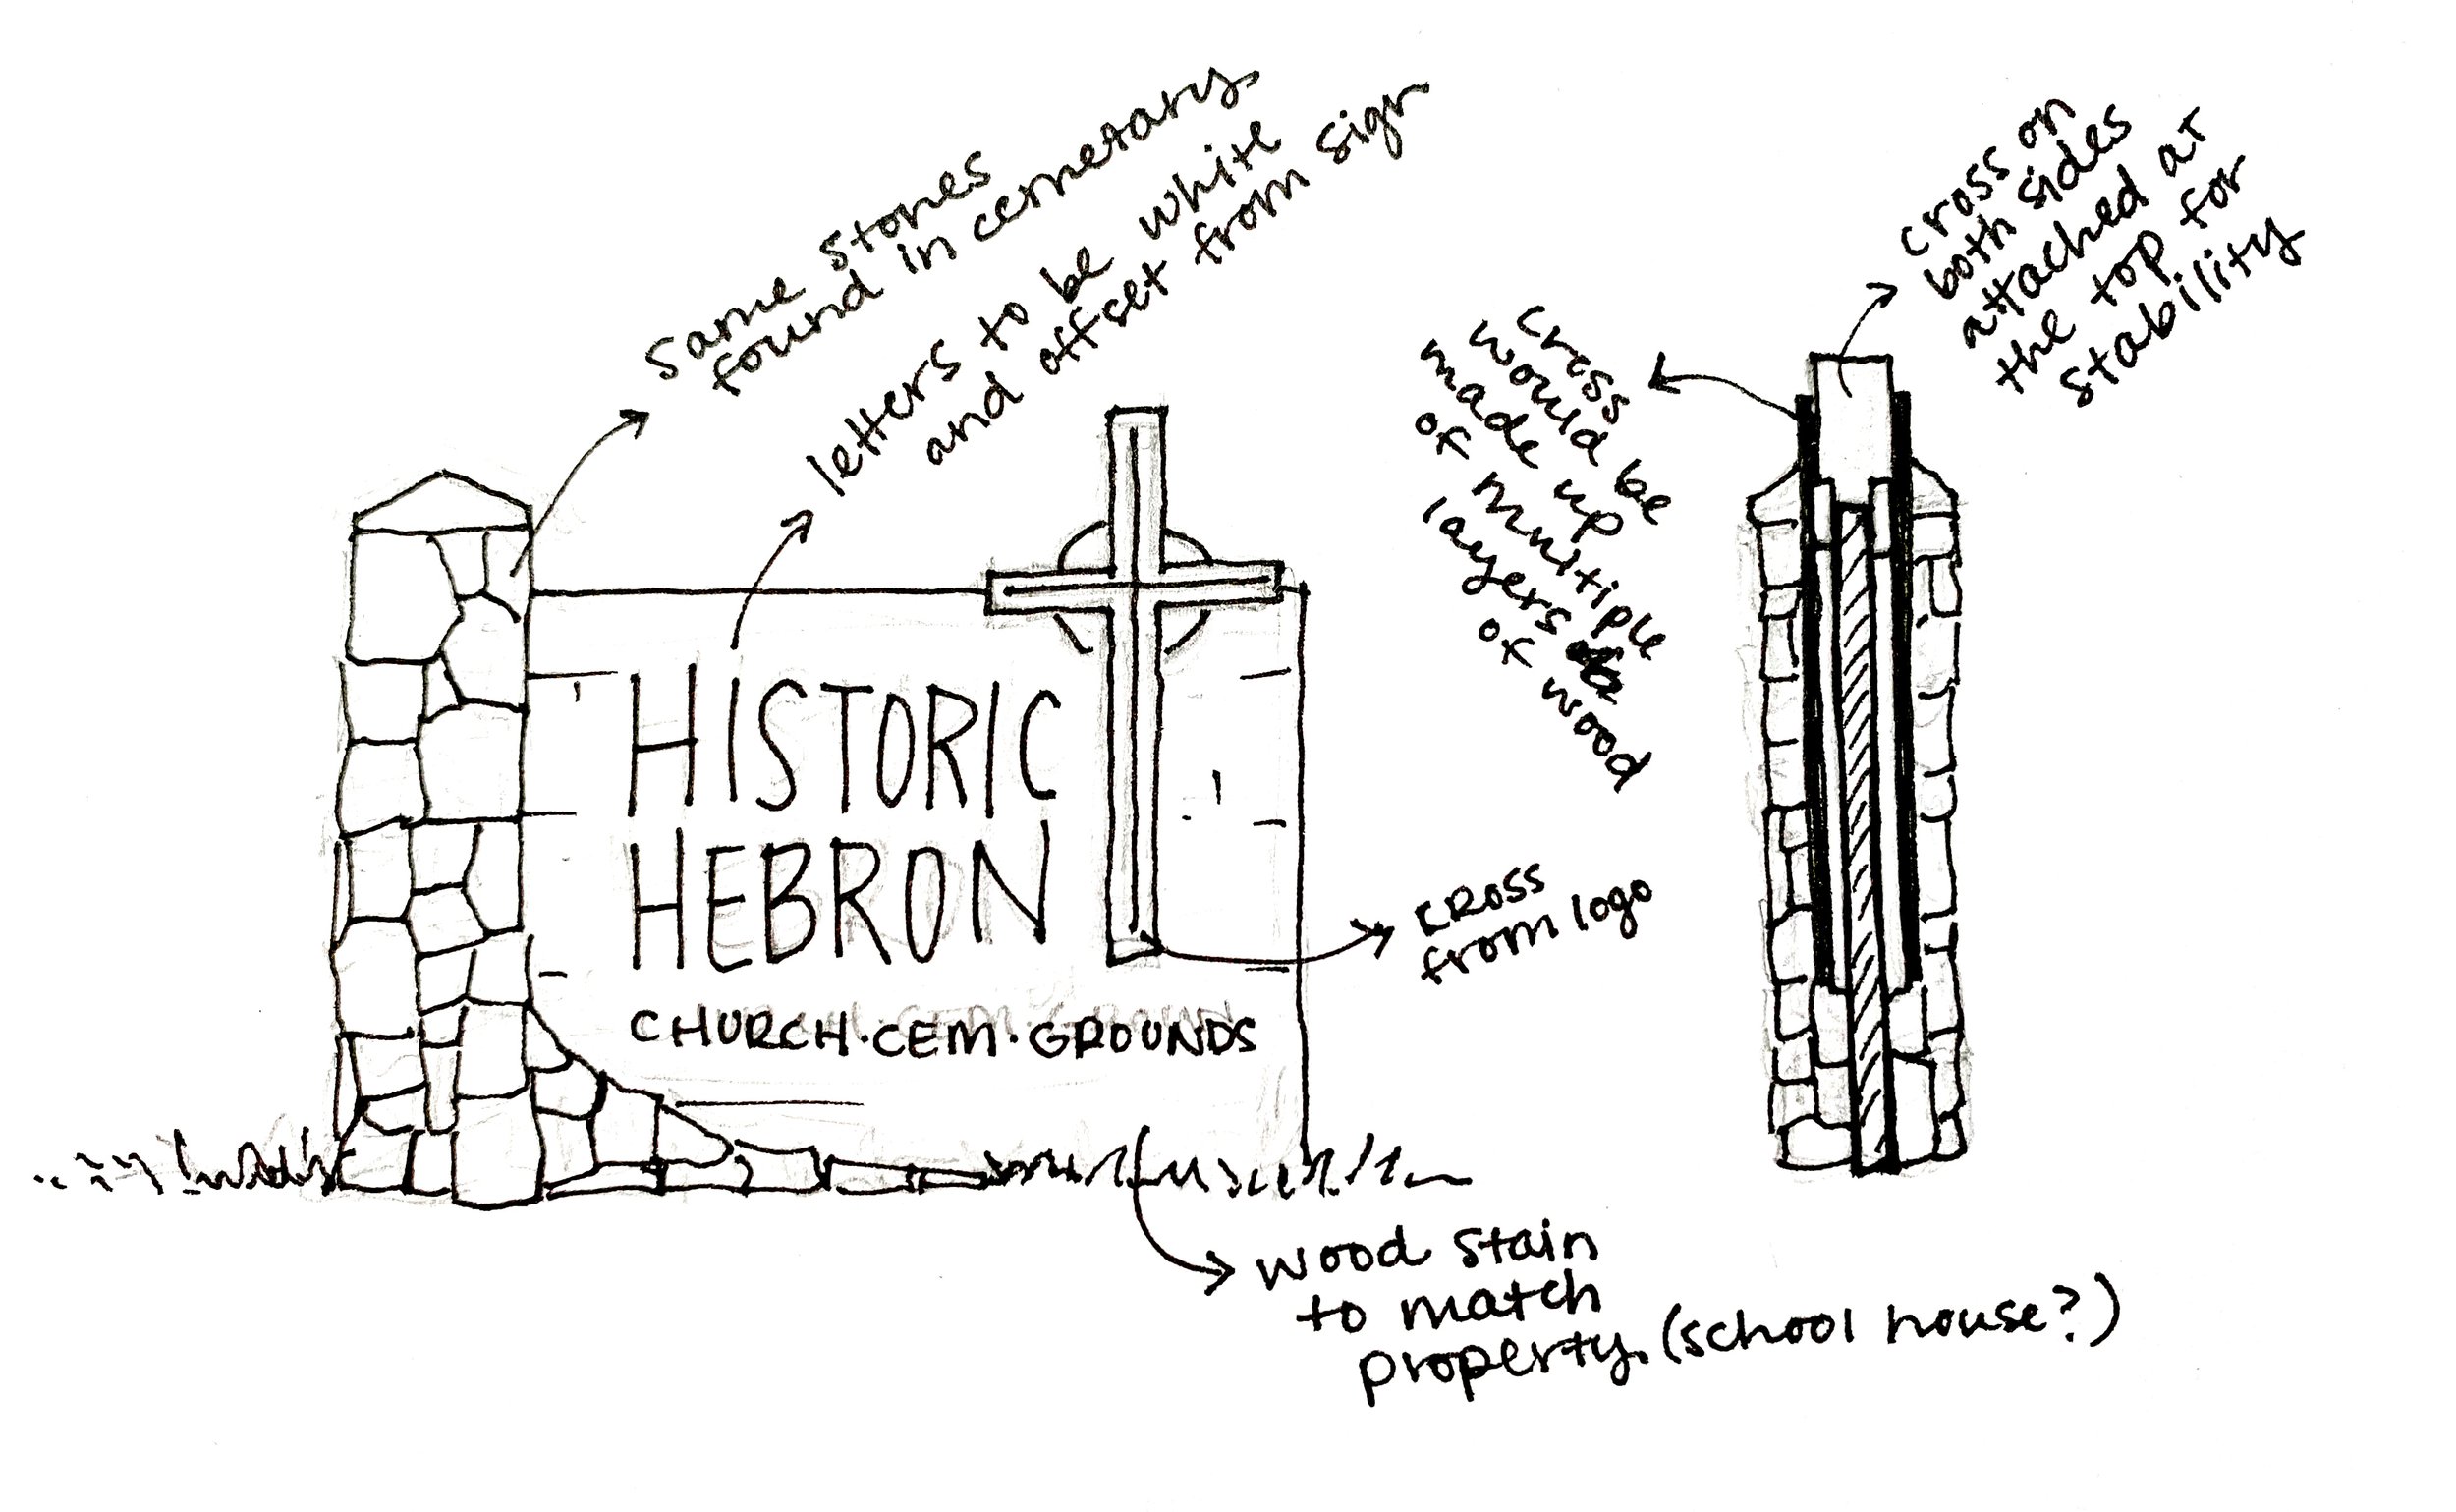 same stones
found in cemetary.
letters to be white
and offset from sign
cross
would be
made up
of multiple
layers
of wood
cross on
both sides
attached at
the top for
stability
HISTORIC
HEBRON
CHURCH.CEM.GROUNDS
cross
from logo
wood stain
to match
property. (school house?)